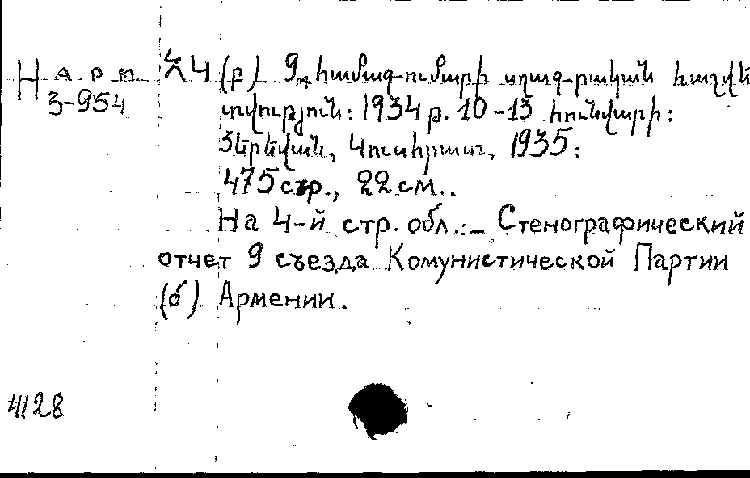 Нарм ՀԿ(բ) 9-րդ համագումարի սղագրական հաշվե
3-954 տվություն: 1934 թ. 10-15 հունվարի:
Յերեվան, Կուսհրատ, 1935:
475 стр., 22 см..
На 4-й стр. обл.:- Стенографический
отчет 9 съезда Комунистической Партии
(б) Армении.
4128